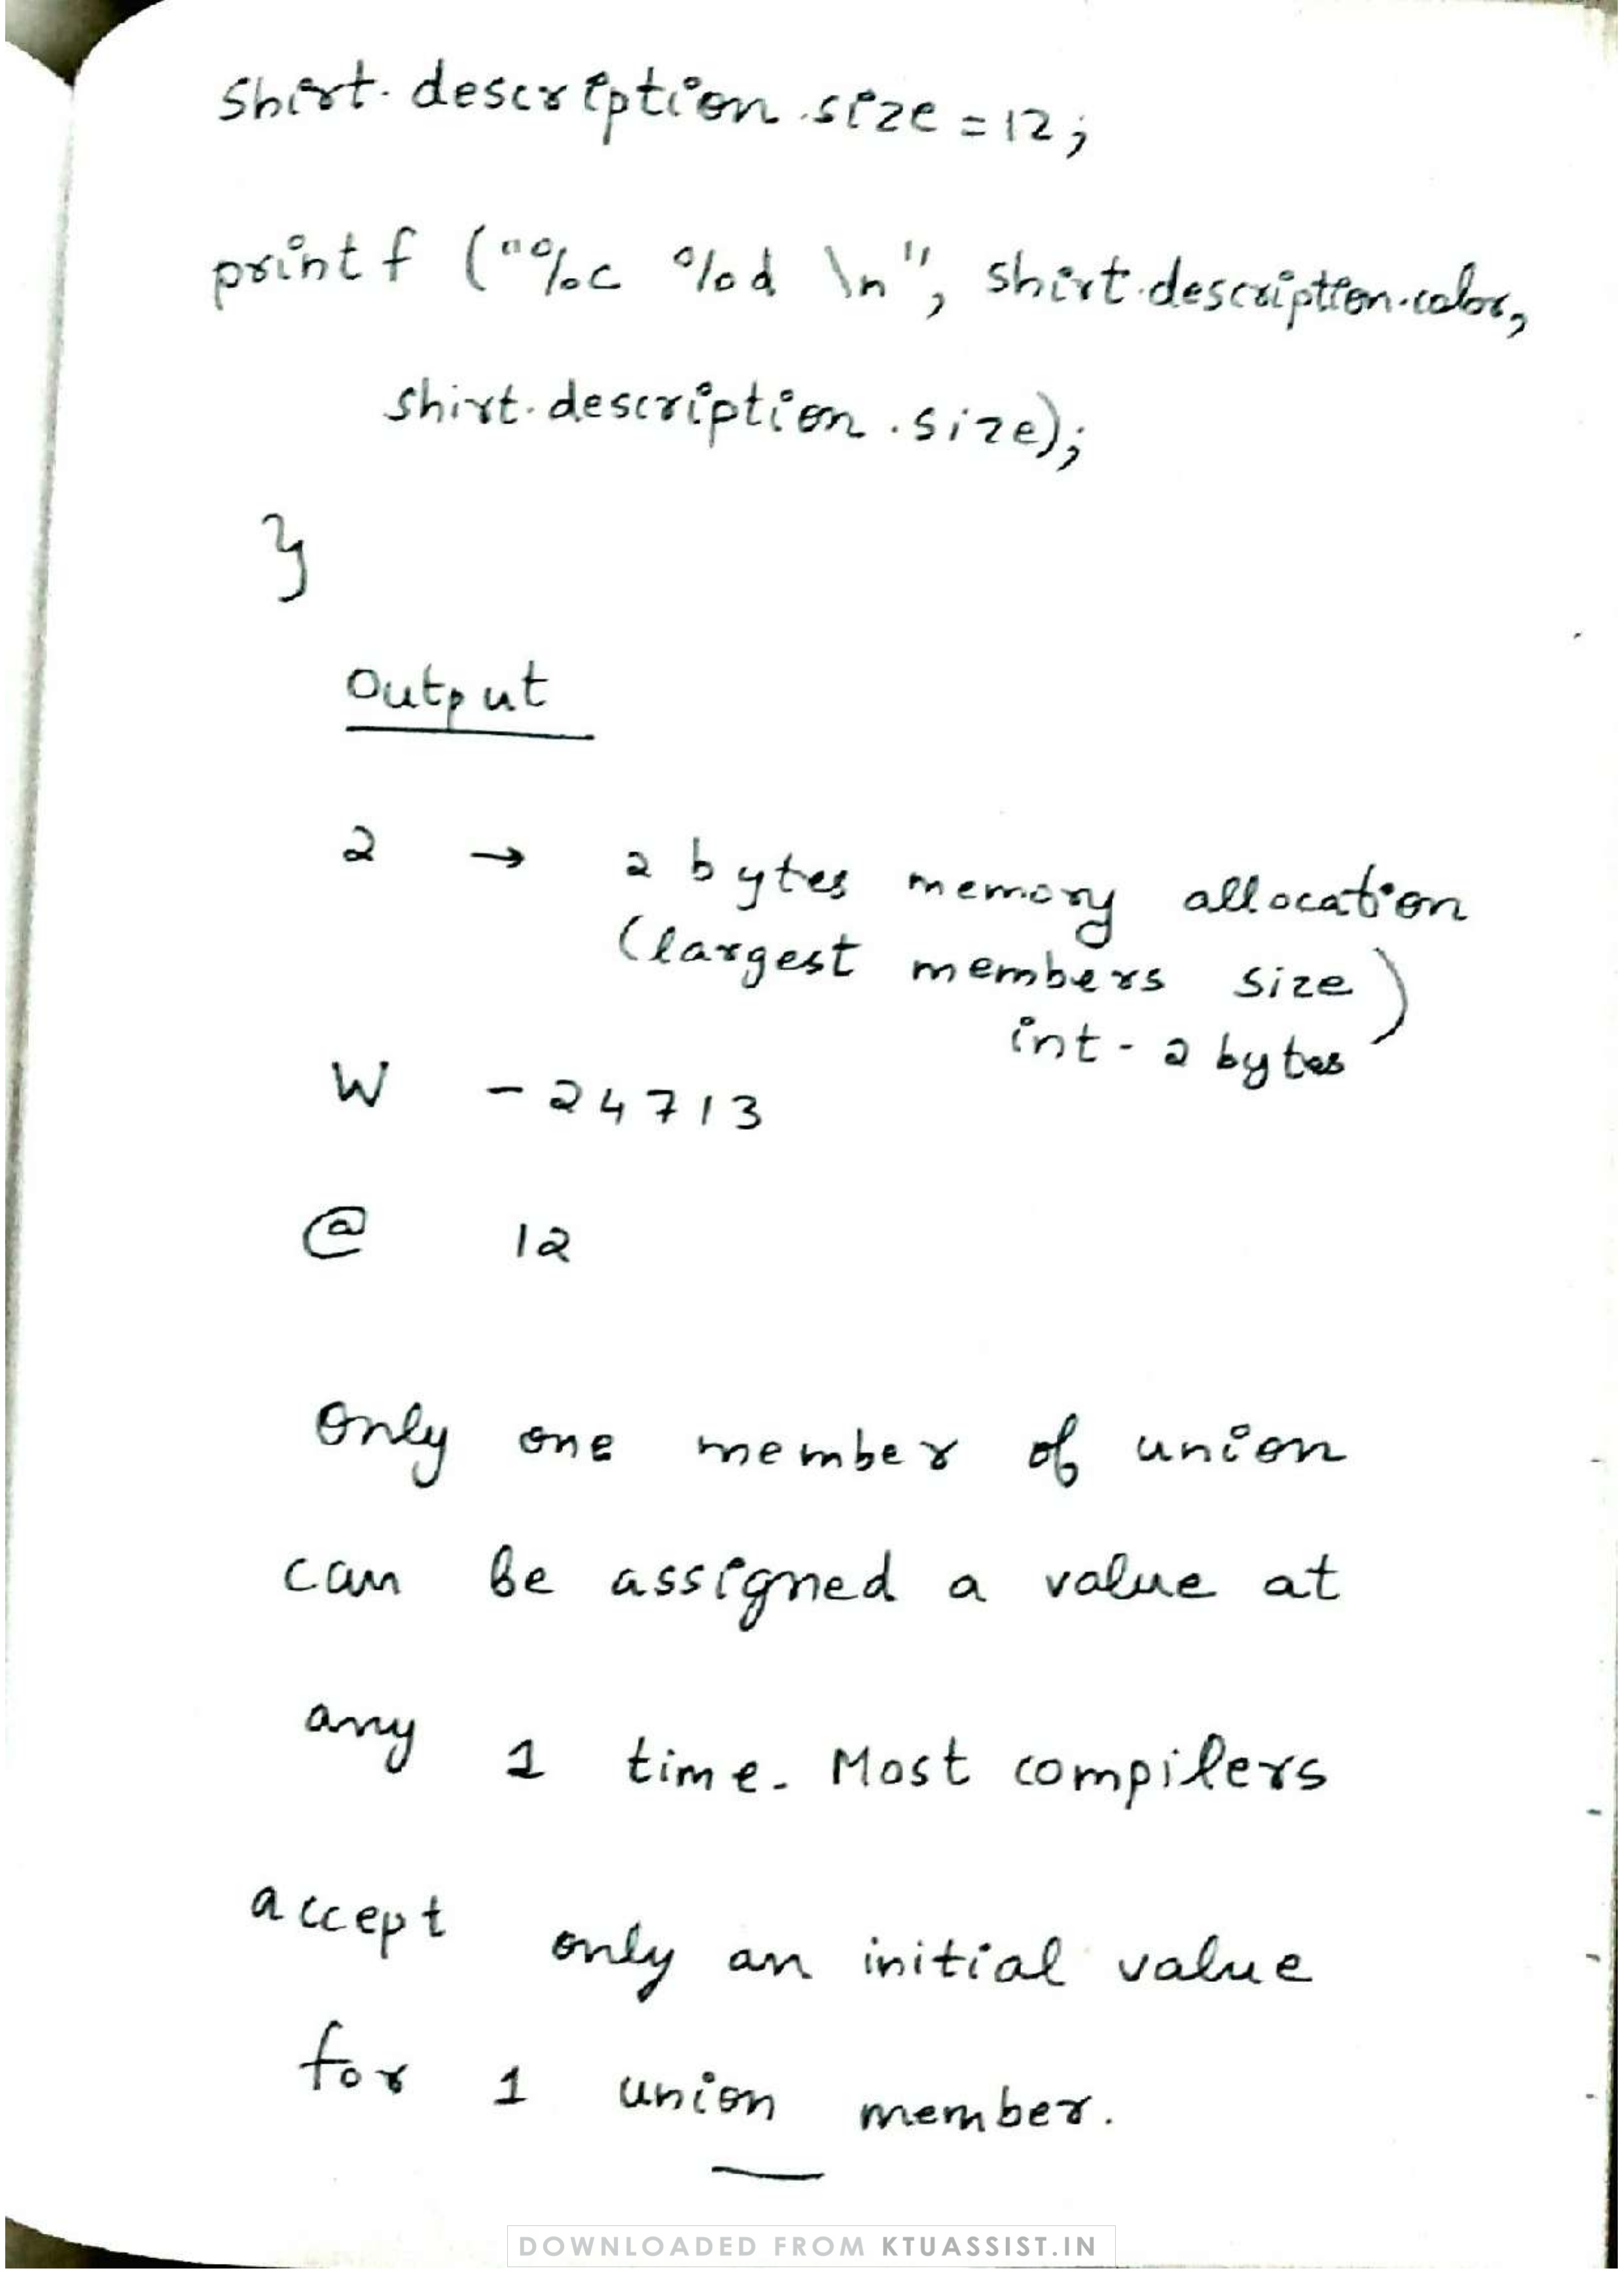 shirt.description.size = 12;
printf ("%c %d \n", shirt.description.color,
shirt.description.size);
}
Output
2 → 2 bytes memory allocation
(largest members size)
int - 2 bytes
W - 24713
@ 12
Only one member of union
can be assigned a value at
any 1 time. Most compilers
accept only an initial value
for 1 union member.
DOWNLOADED FROM KTUASSIST.IN